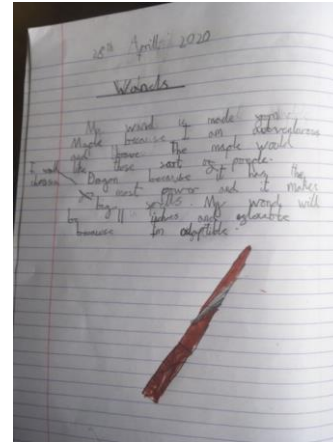 28th April 2020
Wands
My wand is made from
Maple because I am adventurous
and brave. The maple would
like these sort of people.
I would
Dragon because it has the
most power and it makes
big spells. My wand will
be 11 inches and
because I'm adaptible.